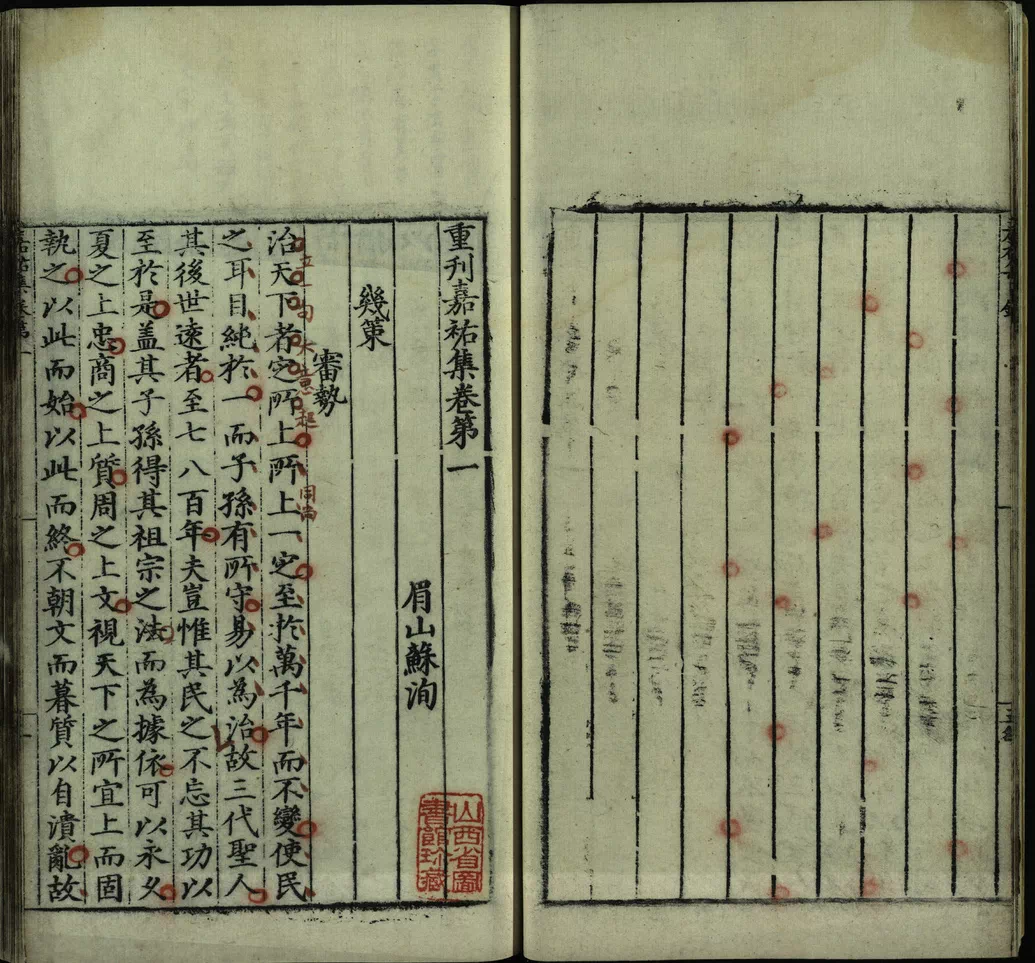 重刊嘉祐集卷第一
眉山蘇洵
幾策
審勢
治天下者定所上所上一定至於萬千年而不變使民
之耳目純於一而子孫有所守易以為治故三代聖人
其後世遠者至七八百年夫豈惟其民之不忘其功以
至於是盖其子孫得其祖宗之法而為據依可以永久
夏之上忠商之上質周之上文視天下之所宜上而固
執之以此而始以此而終不朝文而暮質以自潰亂故
立一句大意起
同尚
山西省圖
書館珍藏